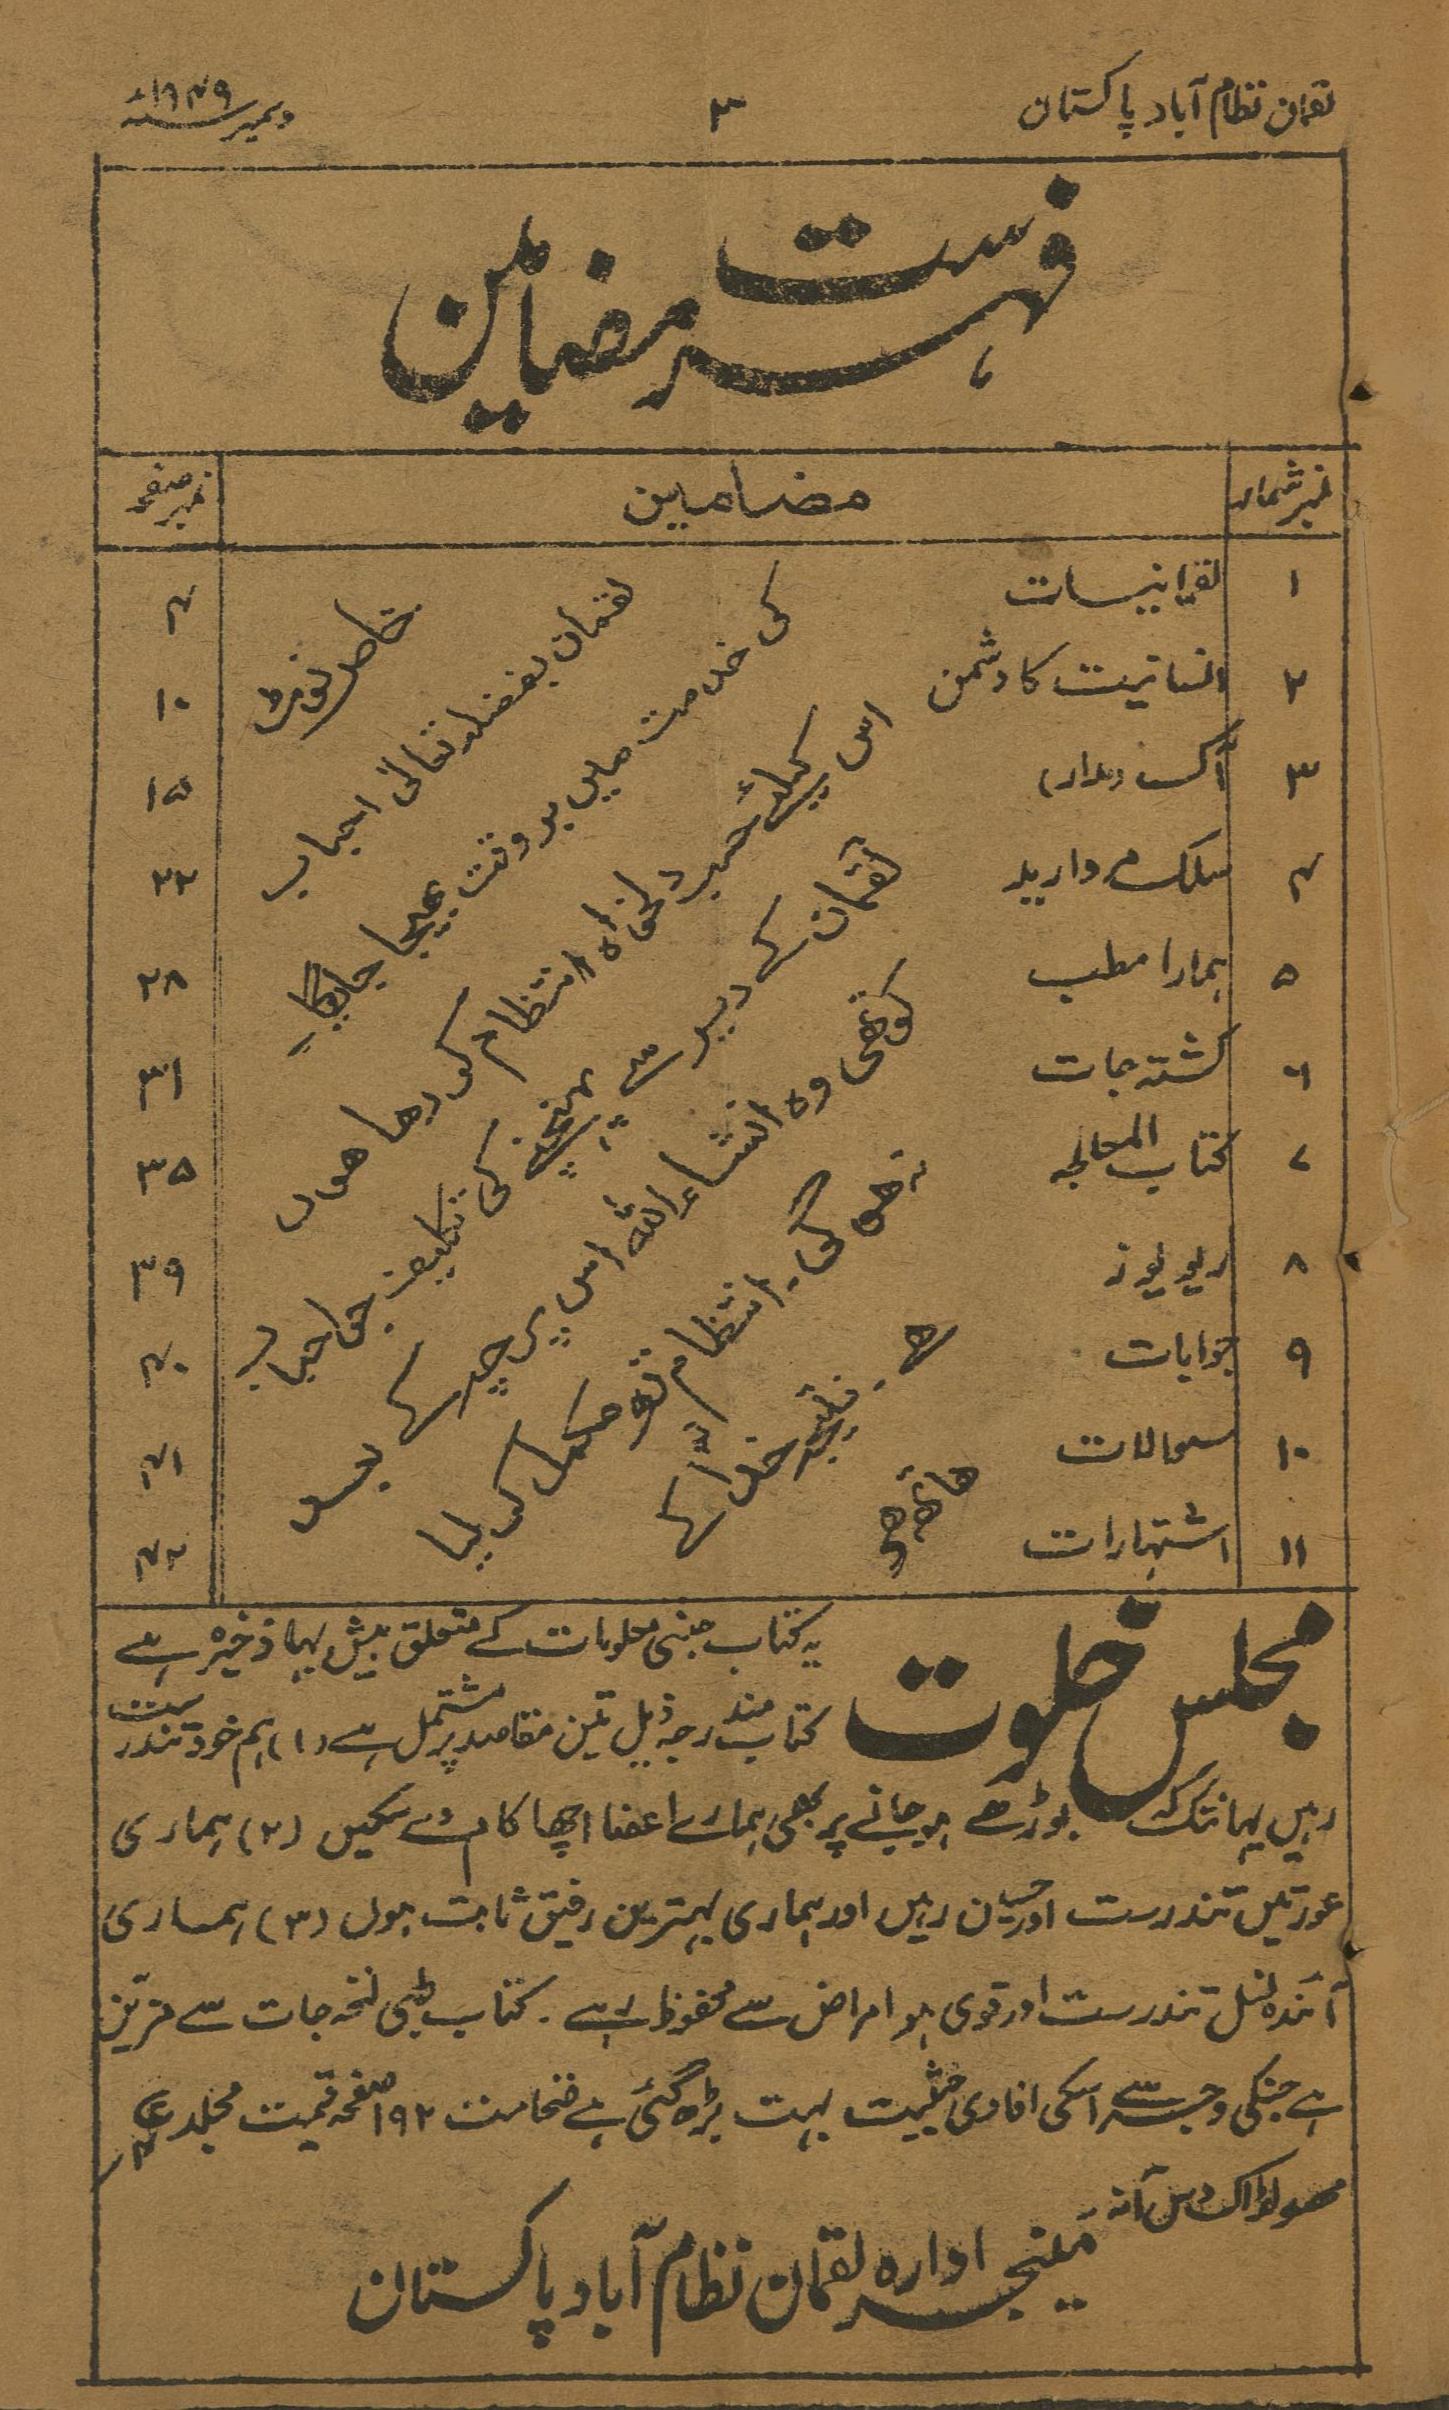 لقمان نظام آباد پاکستان
۳
دسمبر سنہ ۱۹۴۹ء
فہرست مضامین
نمبر شمار
مضامین
نمبر صفحہ
۱ لقمانیات ۴
۲ انسانیت کا دشمن ۱۰
۳ آک (مدار) ۱۵
۴ سلک مروارید ۲۲
۵ ہمارا مطب ۲۸
۶ کشتہ جات ۳۱
۷ کتاب المعالجہ ۳۵
۸ ریویوز ۳۹
۹ جوابات ۴۰
۱۰ سوالات ۴۱
۱۱ اشتہارات ۴۲
خاص نوٹ
لقمان بفضلہ تعالیٰ احباب
کی خدمت میں بروقت بھیجا جائیگا۔
اس کیلئے حسب دلخواہ انتظام کر رہا ہوں
لقمان کے دیر سے پہنچنے کی تکلیف جو احباب
کو تھی وہ انشاء اللہ اس پرچہ کے بعد
نہ ہو گی۔ انتظام تو مکمل کر لیا
ہے۔ نتیجہ خدا کے
ہاتھ ہے
مجلس خلوت
یہ کتاب جنسی معلومات کے متعلق بیش بہا ذخیرہ ہے
کتاب مندرجہ ذیل تین مقاصد پر مشتمل ہے (۱) ہم خود تندرست
رہیں یہانتک کہ بوڑھے ہو جانے پر بھی ہمارے اعضا اچھا کام دے سکیں (۲) ہماری
عورتیں تندرست اور حسین رہیں اور ہماری بہترین رفیق ثابت ہوں (۳) ہماری
آئندہ نسل تندرست اور قوی ہو امراض سے محفوظ رہے۔ کتاب طبی نسخہ جات سے مزین
ہے جنکی وجہ سے اسکی افادی حیثیت بہت بڑھ گئی ہے ضخامت ۱۹۲ صفحہ قیمت مجلد
محصولڈاک دس آنہ
مینیجر ادارہ لقمان نظام آباد پاکستان